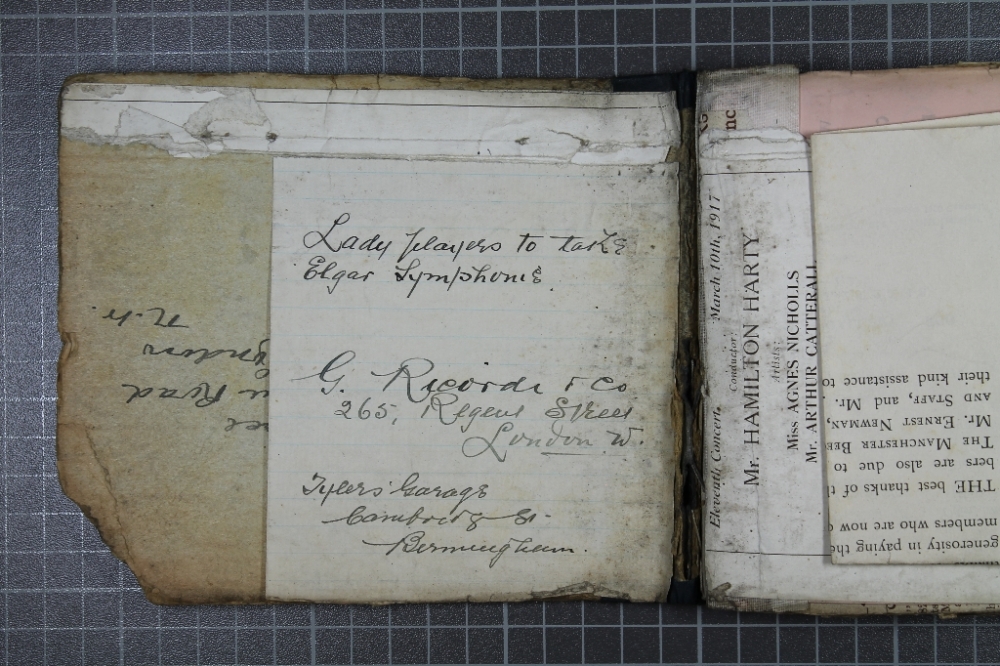 Lady players to take
Elgar Symphonie.
G. Ricordi & Co
265, Regent Street
London W.
Tylers' Garage
Cambridge St.
Birmingham.
Road
London
N.W.
Eleventh Concert, March 10th, 1917
Conductor:
Mr. HAMILTON HARTY
Artists:
Miss AGNES NICHOLLS
Mr. ARTHUR CATTERALL
generosity in paying the
members who are now
THE best thanks of
bers are also due to
THE MANCHESTER
Mr. ERNEST NEWMAN,
AND STAFF, and Mr.
their kind assistance to